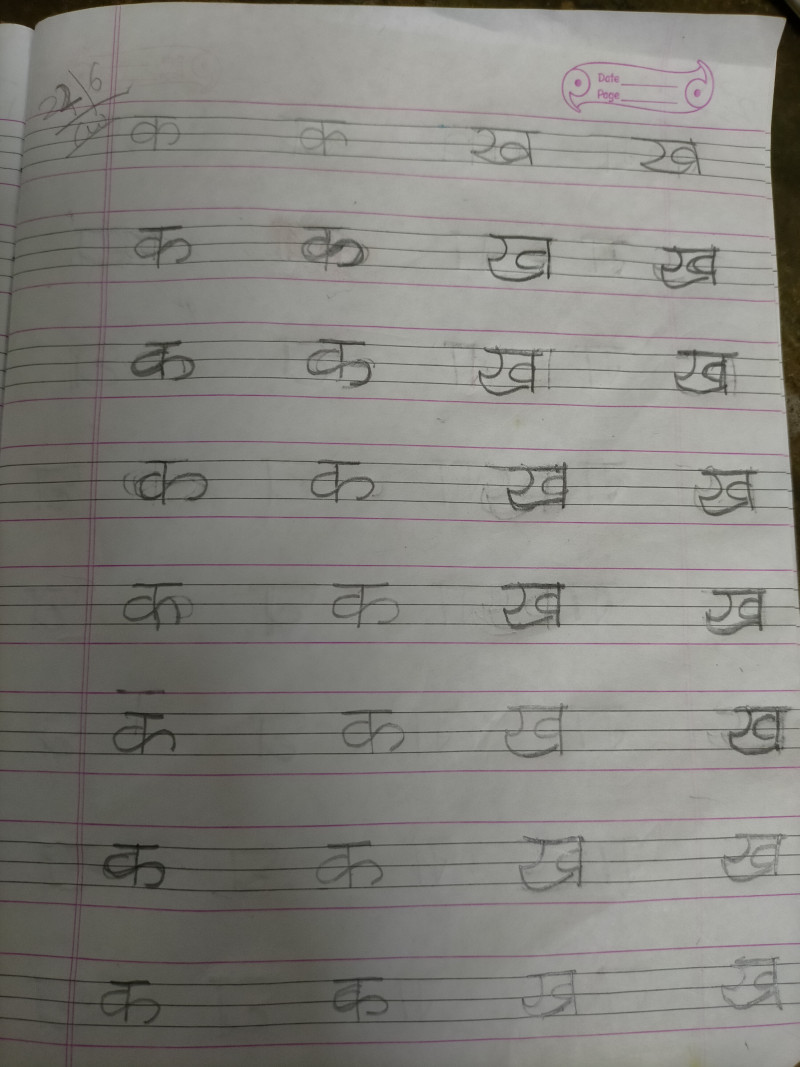 22/6
Date
Page
क क ख ख
क क ख ख
क क ख ख
क क ख ख
क क ख ख
क क ख ख
क क ख ख
क क ख ख